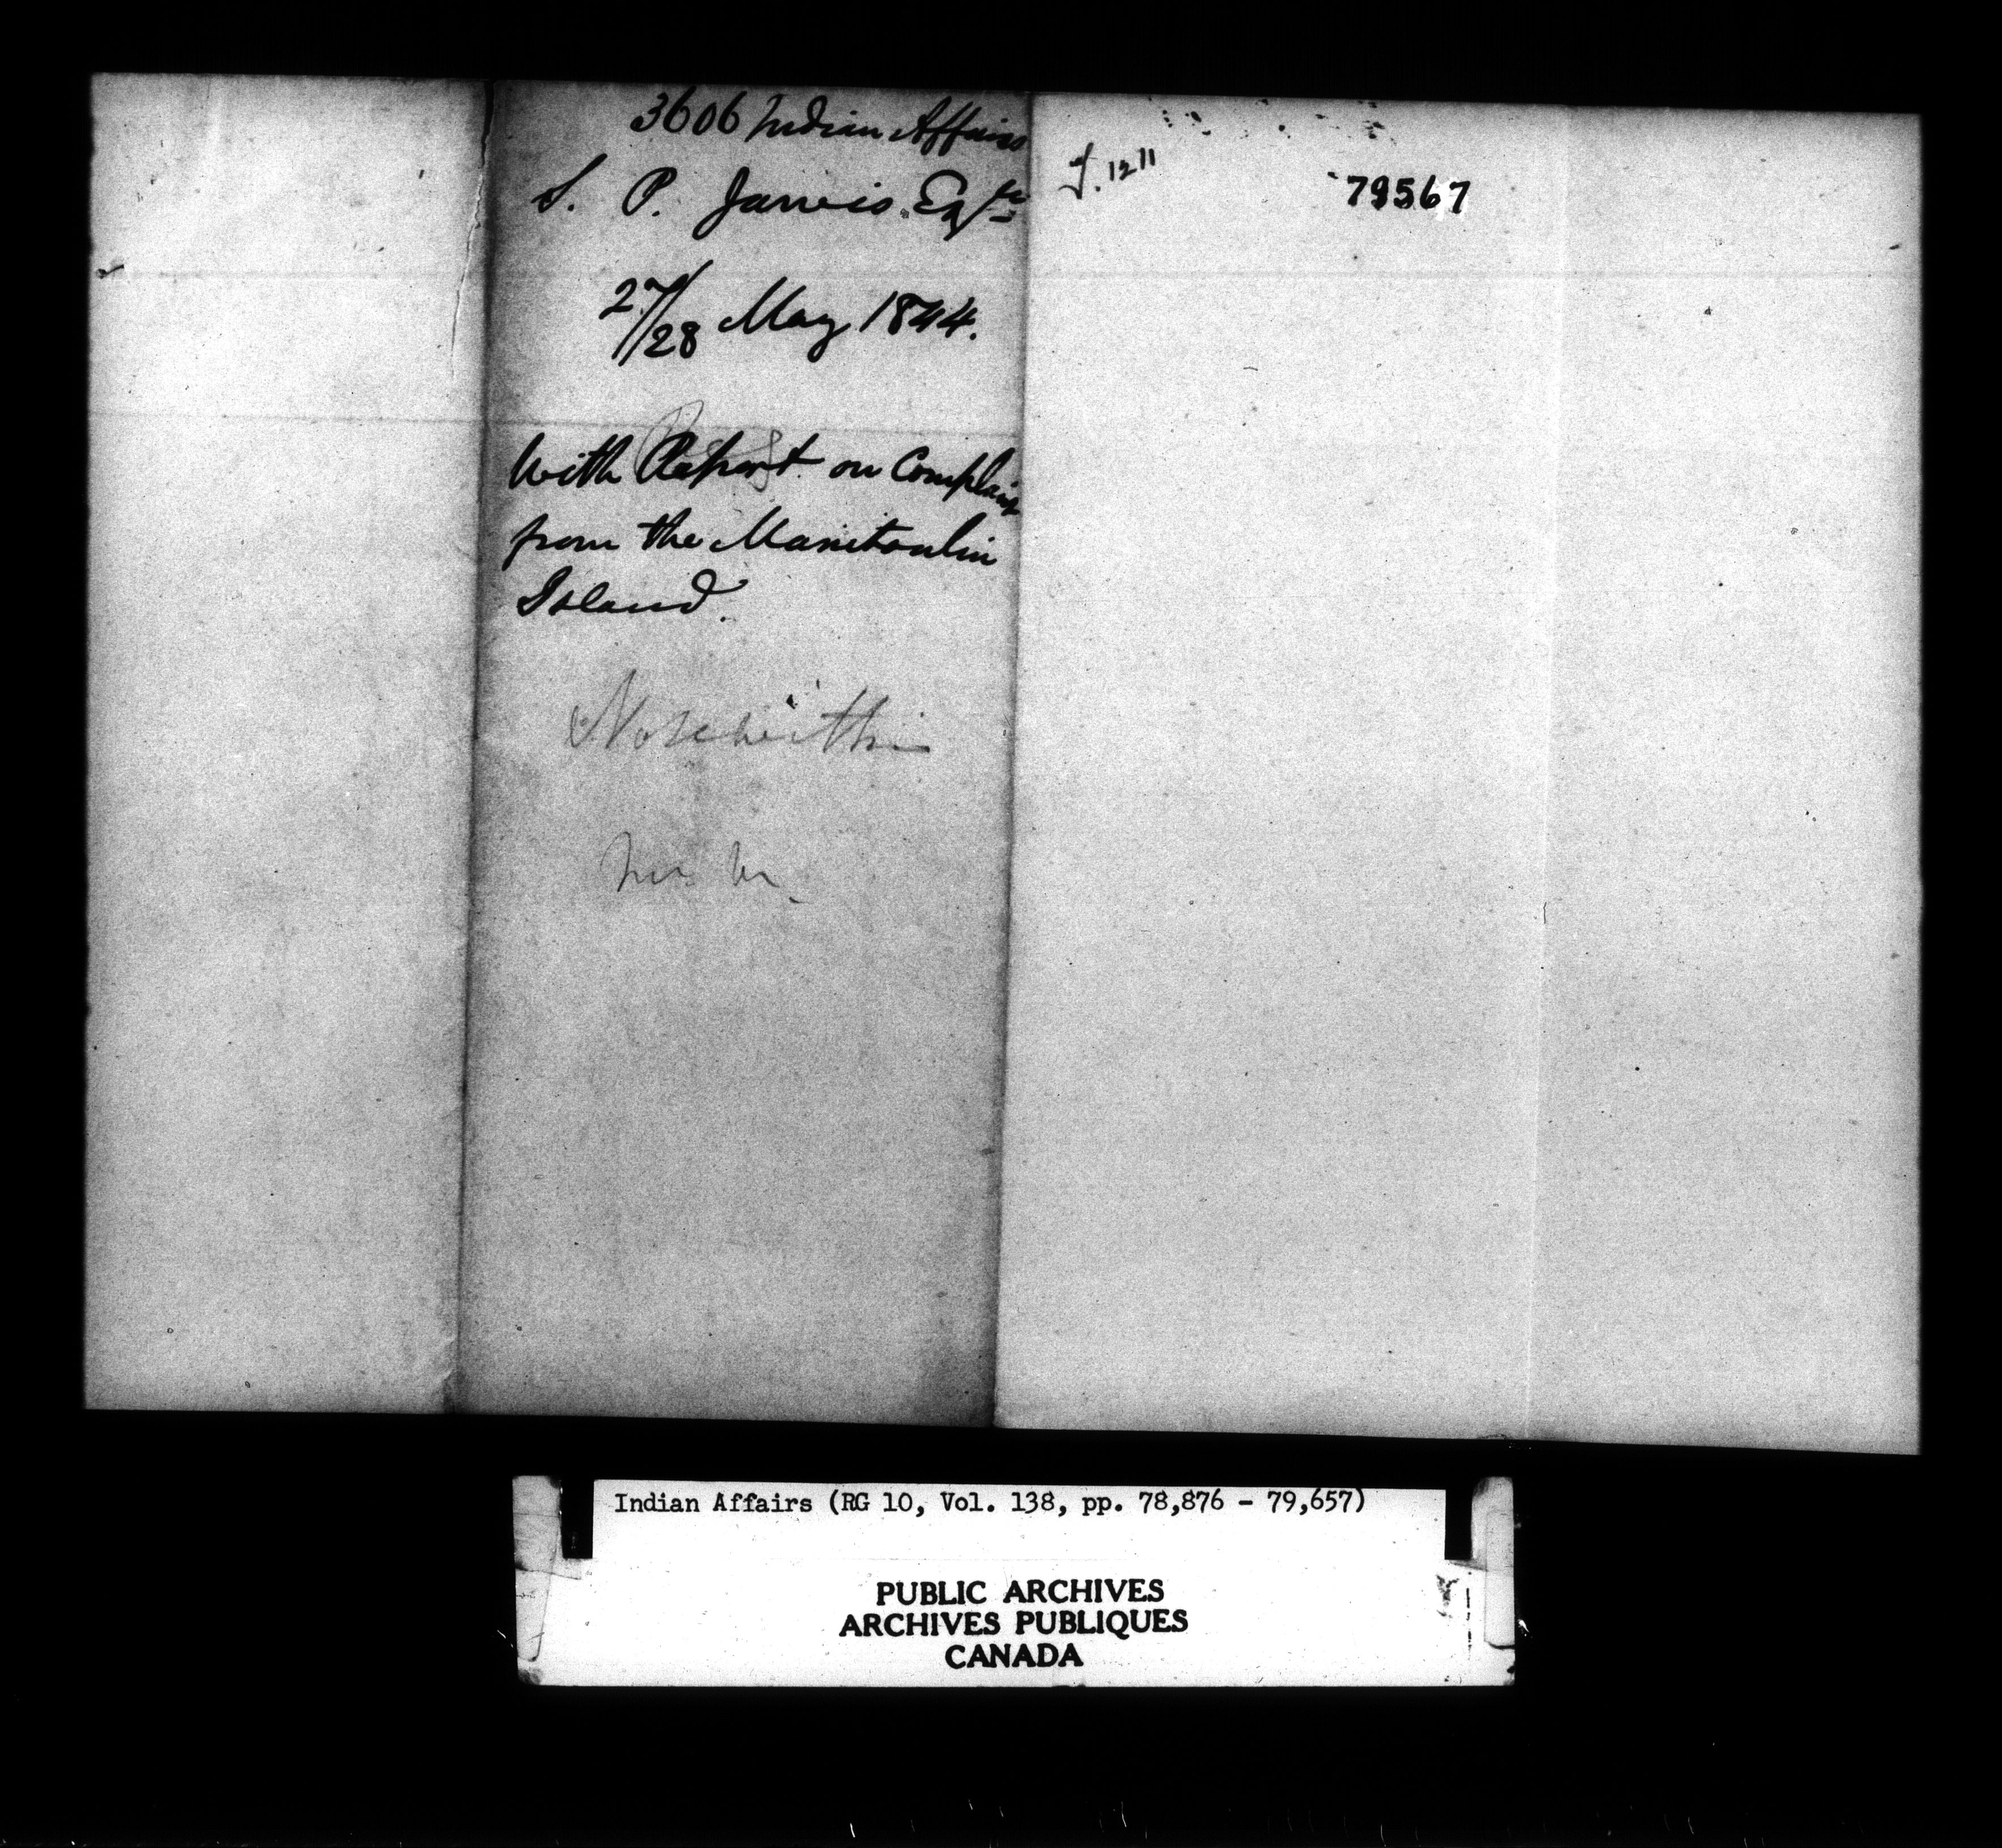 3606 Indian Affairs
S. P. Jarvis Eqre
27/28 May 1844.
With Report on Complain
from the Manitoulin
Island.
Note within
J. 1211
79567
Indian Affairs (RG 10, Vol. 138, pp. 78,876 - 79,657)
PUBLIC ARCHIVES
ARCHIVES PUBLIQUES
CANADA